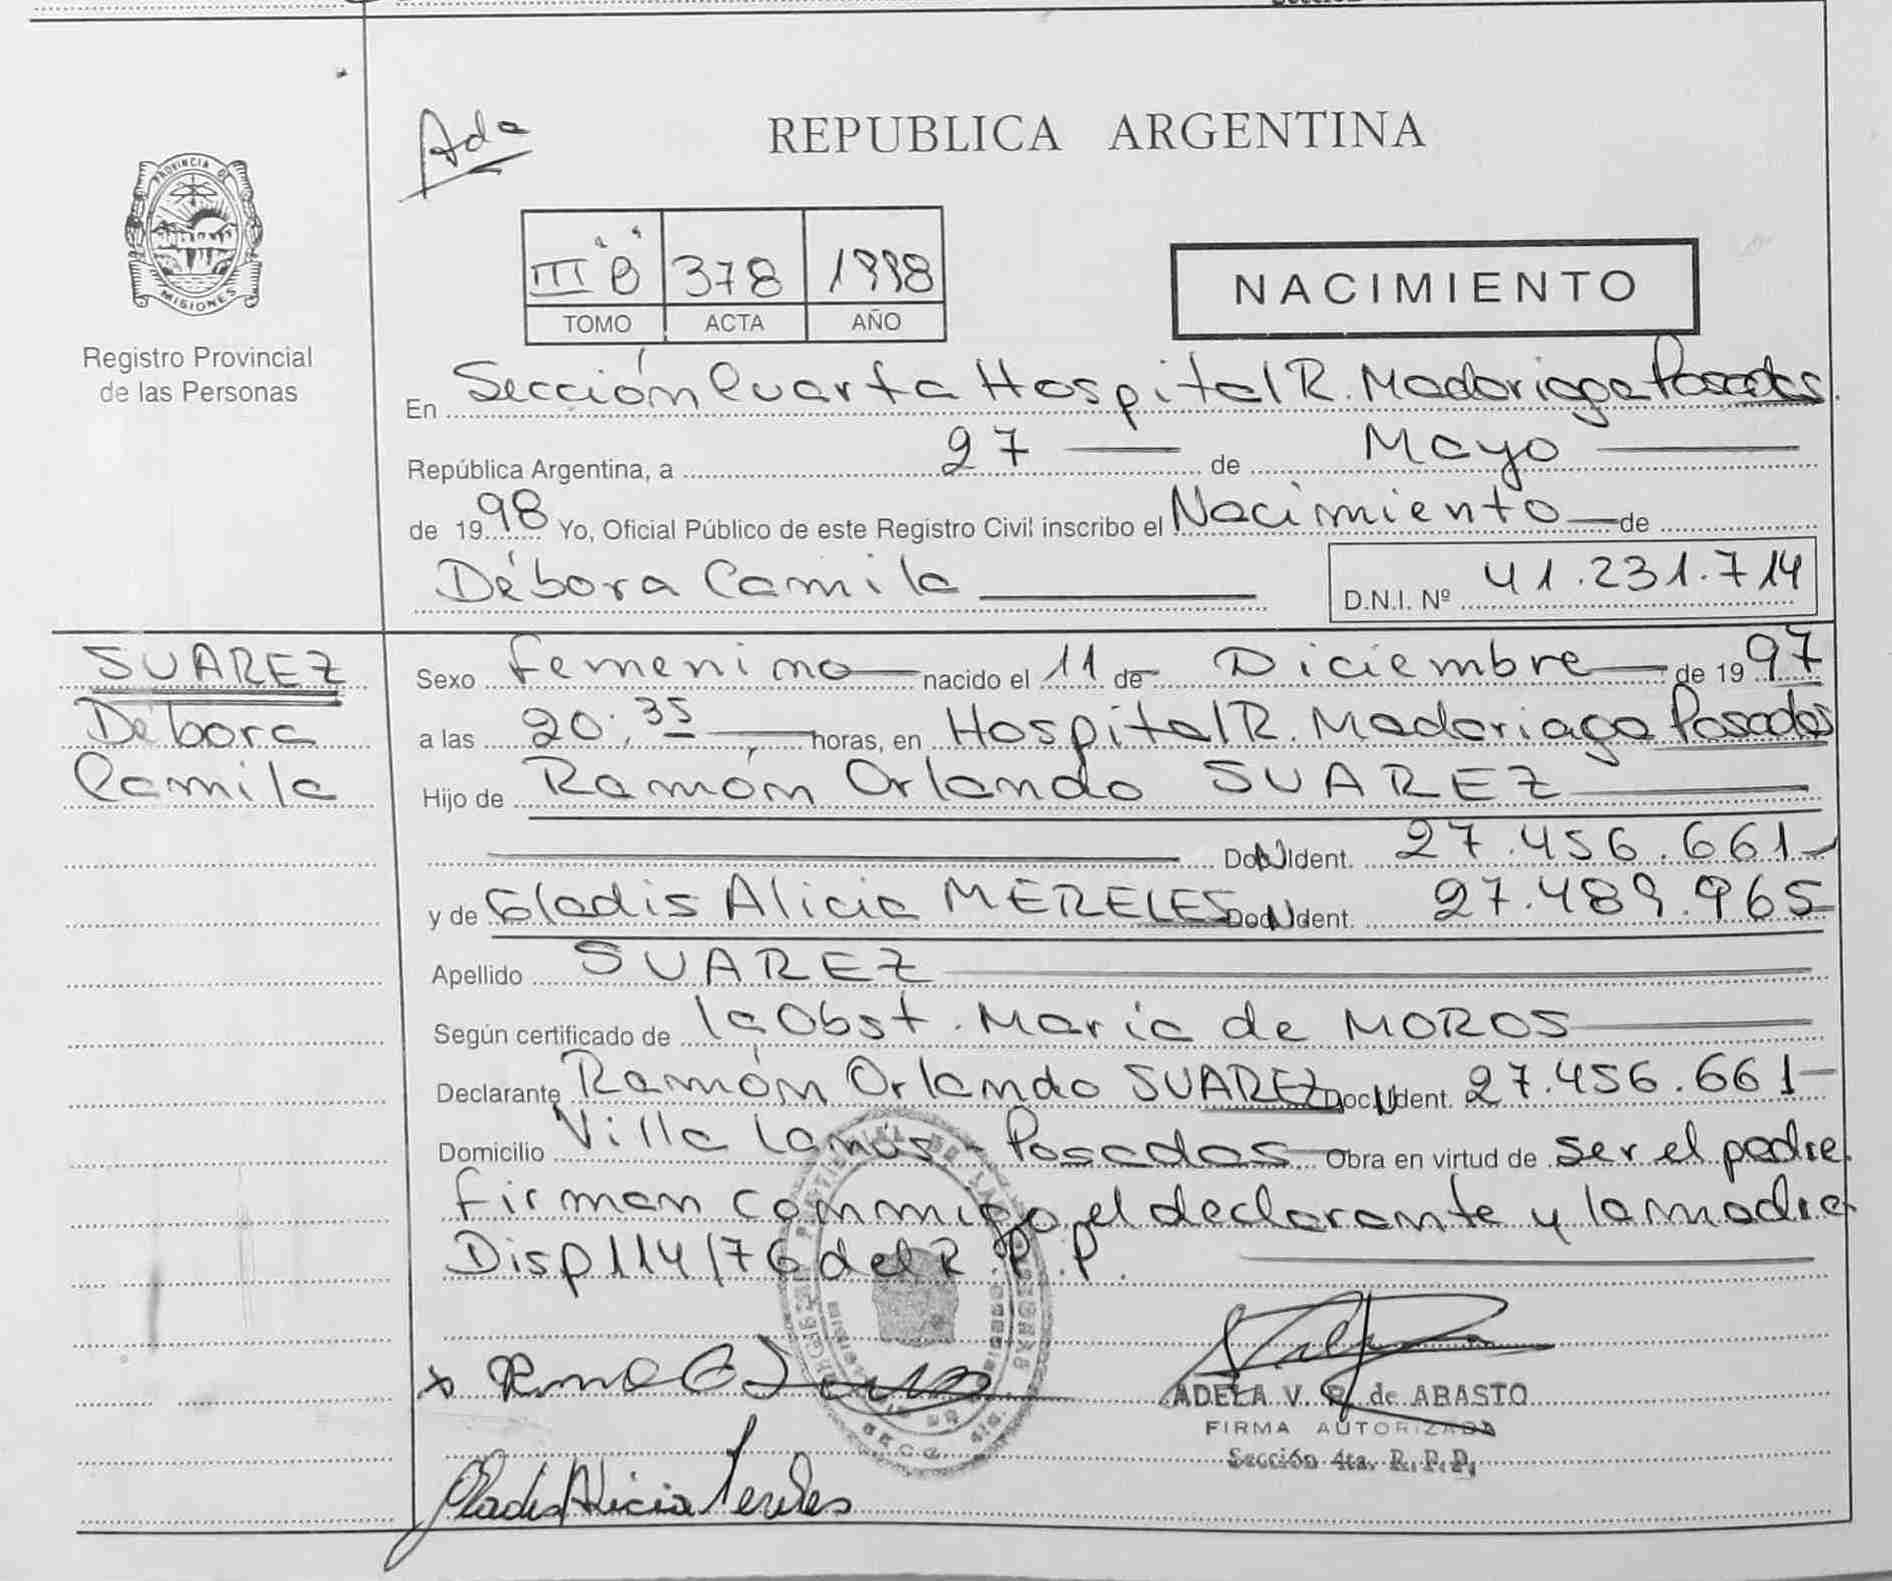 Ada
REPUBLICA ARGENTINA
PROVINCIA DE
MISIONES
Registro Provincial
de las Personas
III B 378 1998
TOMO ACTA AÑO
NACIMIENTO
En Sección Cuarta Hospital R. Madariaga Posadas
República Argentina, a 27 de Mayo
de 1998 Yo, Oficial Público de este Registro Civil inscribo el Nacimiento de
Débora Camila D.N.I. Nº 41.231.714
SUAREZ
Débora
Camila
Sexo femenino nacido el 11 de Diciembre de 1997
a las 20:35 horas, en Hospital R. Madariaga Posadas
Hijo de Ramón Orlando SUAREZ
Doc N Ident. 27.456.661
y de Gladis Alicia MERELES Doc N Ident. 27.489.965
Apellido SUAREZ
Según certificado de la Obst. Maria de MOROS
Declarante Ramón Orlando SUAREZ Doc N Ident. 27.456.661
Domicilio Villa Lanús - Posadas Obra en virtud de ser el padre
firman conmigo el declarante y la madre
Disp 114/76 del R.P.P.
ADELA V. R. de ABASTO
FIRMA AUTORIZADA
Sección 4ta. R.P.P.
Gladis Alicia Mereles